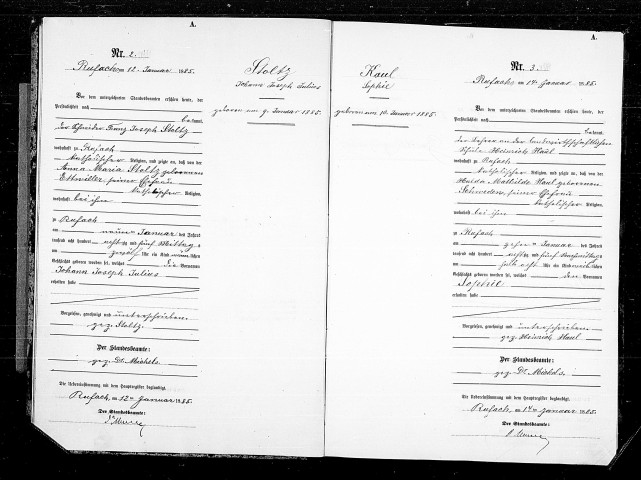 A.
Nr. 2.
Rufach am 12. Januar 1885.
Vor dem unterzeichneten Standesbeamten erschien heute, der
Persönlichkeit nach
bekannt,
der Schneider Franz Joseph Stoltz
wohnhaft zu Rufach
katholischer Religion, und zeigte an, daß von der
Anna Maria Stoltz geborenen
Ettwiller, seiner Ehefrau
katholischer Religion,
wohnhaft bei ihm
zu Rufach
am neunten Januar des Jahres
tausend acht hundert achtzig und fünf Mittags
um Uhr ein Kind männlichen
Geschlechts geboren worden sei, welches die Vornamen
Johann Joseph Julius
erhalten habe
Vorgelesen, genehmigt und unterschrieben
gez. Stoltz.
Der Standesbeamte:
gez. Dr. Michels.
Die Uebereinstimmung mit dem Hauptregister beglaubigt.
Rufach am 12ten Januar 1885.
Der Standesbeamte:
Stoltz
Johann Joseph Julius
geboren am 9. Januar 1885.
A.
Kaul
Sophie
geboren am 10. Januar 1885.
Nr. 3.
Rufach am 14. Januar 1885.
Vor dem unterzeichneten Standesbeamten erschien heute, der
Persönlichkeit nach
bekannt,
der Lehrer an der landwirthschaftlichen
Schule Heinrich Kaul
wohnhaft zu Rufach
katholischer Religion, und zeigte an, daß von der
Mathilde Kaul geborenen
seiner Ehefrau
katholischer Religion,
wohnhaft bei ihm
zu Rufach
am zehnten Januar des Jahres
tausend acht hundert achtzig und fünf
um Uhr ein Kind weiblichen
Geschlechts geboren worden sei, welches den Vornamen
Sophie
erhalten habe
Vorgelesen, genehmigt und unterschrieben
gez. Heinrich Kaul
Der Standesbeamte:
gez. Dr. Michels.
Die Uebereinstimmung mit dem Hauptregister beglaubigt.
Rufach, am 14ten Januar 1885.
Der Standesbeamte: